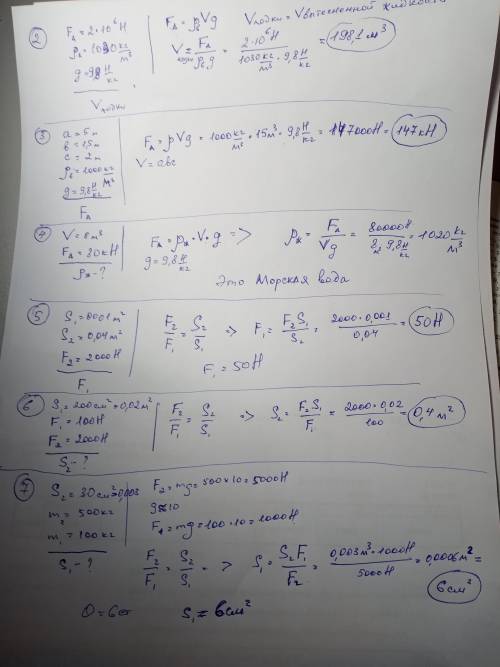 ② F_A = 2·10⁶ H
ρ_B = 1030 кг/м³
g = 9,8 H/кг
V лодки
F_A = ρ_B V g
V лодки = V вытесненной жидкости
V лодки = F_A / ρ_B g = 2·10⁶ H / 1030 кг/м³ · 9,8 H/кг = 198,1 м³
③ a = 5 м
b = 1,5 м
c = 2 м
ρ_B = 1000 кг/м³
g = 9,8 H/кг
F_A
F_A = ρVg = 1000 кг/м³ · 15 м³ · 9,8 H/кг = 147000 H = 147 кH
V = abc
④ V = 8 м³
F_A = 80 кH
ρ_ж - ?
F_A = ρ_ж · V · g =>
g = 9,8 H/кг
ρ_ж = F_A / Vg = 80000 H / 8 м³ · 9,8 H/кг = 1020 кг/м³
Это Морская вода
⑤ S₁ = 0,001 м²
S₂ = 0,04 м²
F₂ = 2000 H
F₁
F₂/F₁ = S₂/S₁ => F₁ = F₂S₁/S₂ = 2000·0,001 / 0,04 = 50 H
F₁ = 50 H
⑥ S₁ = 200 см² = 0,02 м²
F₁ = 100 H
F₂ = 2000 H
S₂ - ?
F₂/F₁ = S₂/S₁ => S₂ = F₂S₁/F₁ = 2000·0,02 / 100 = 0,4 м²
⑦ S₂ = 30 см² = 0,003
m₂ = 500 кг
m₁ = 100 кг
S₁ - ?
F₂ = mg = 500×10 = 5000 H
g≈10
F₁ = mg = 100·10 = 1000 H
F₂/F₁ = S₂/S₁ => S₁ = S₂F₁/F₂ = 0,003 м² · 1000 H / 5000 H = 0,0006 м² =
6 см²
S₁ = 6 см²